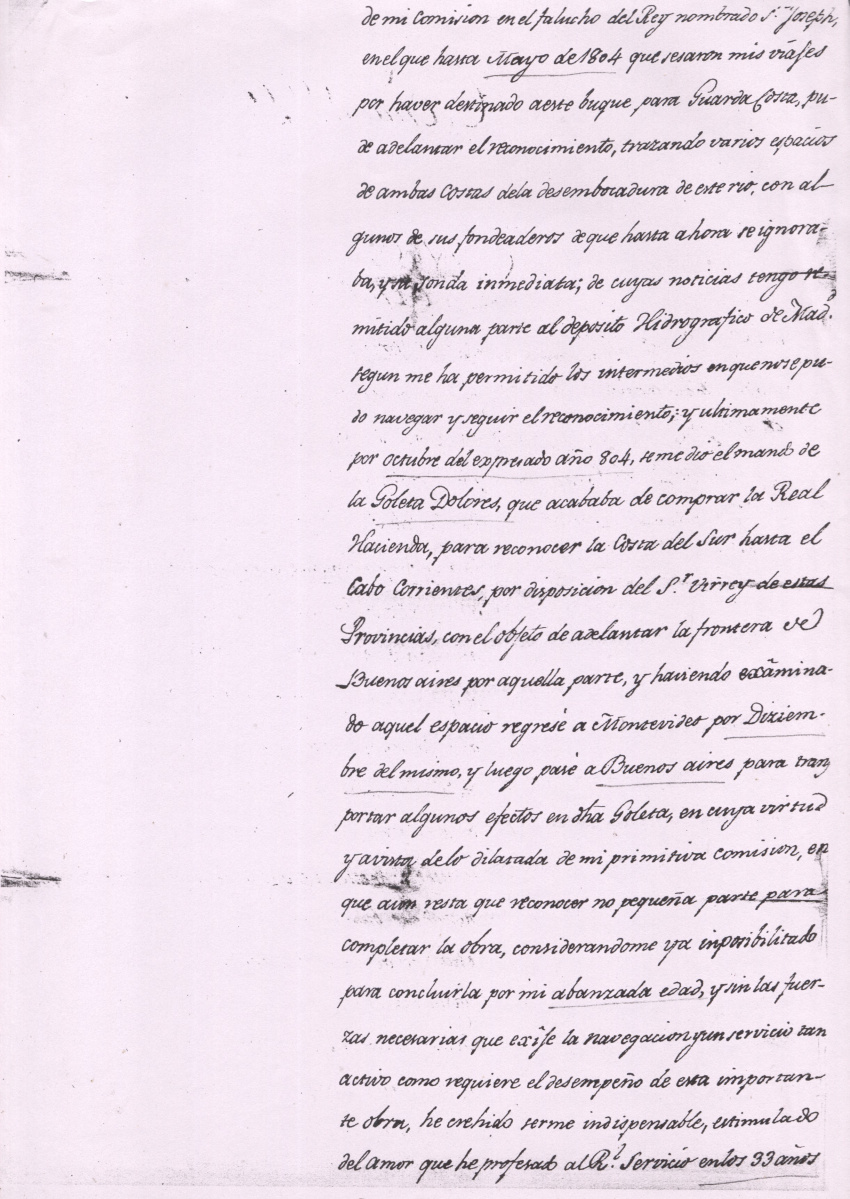 de mi Comision en el falucho del Rey nombrado Sn. Joseph,
en el que hasta Mayo de 1804 que sesaron mis viajes
por haver destinado a este buque, para Guarda Costa, pu-
de adelantar el reconocimiento, trazando varios espacios
de ambas Costas dela desembocadura de este rio, con al-
gunos de sus fondeaderos de que hasta ahora se ignora-
ba, y su sonda inmediata; de cuyas noticias tengo re-
mitido alguna parte al deposito Hidrografico de Madd.
segun me ha permitido los intermedios en que no se pu-
do navegar y seguir el reconocimiento; y ultimamente
por octubre del expresado año 804, se me dio el mando de
la Goleta Dolores, que acababa de comprar la Real
Hacienda, para reconocer la Costa del Sur hasta el
Cabo Corrientes, por disposicion del Sr. Virrey de estas
Provincias, con el objeto de adelantar la frontera de
Buenos aires por aquella parte, y haviendo exâmina-
do aquel espacio regresé a Montevideo por Diziem-
bre del mismo, y luego pasé a Buenos aires para trans
portar algunos efectos en dha Goleta, en cuya virtud
y avista delo dilatada de mi primitiva Comision, en
que aun resta que reconocer no pequeña parte para
completar la obra, considerandome ya inposibilitado
para concluirla por mi abanzada edad, y sin las fuer-
zas necesarias que exîje la navegacion y un servicio tan
activo como requiere el desempeño de esta importan-
te obra, he crehido serme indispensable, estimulado
del Amor que he profesado al Rl. Servicio en los 33 años